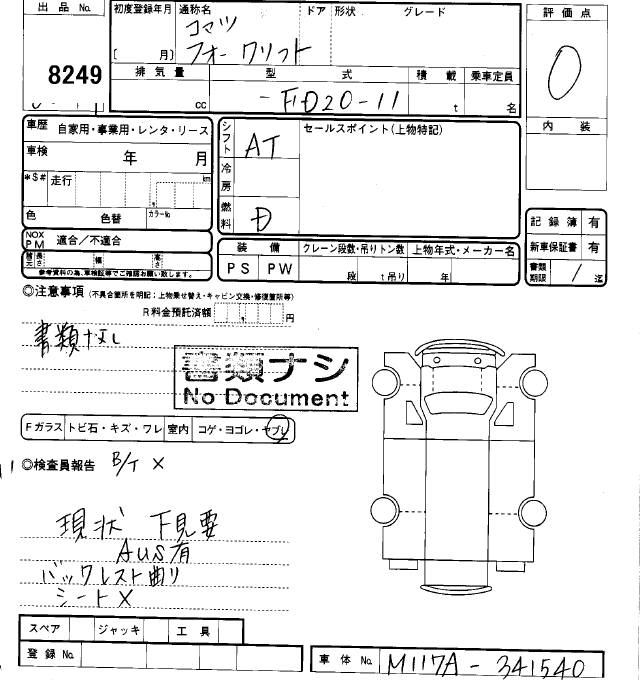 出品 No.
8249
初度登録年月 通称名 ドア 形状 グレード
コマツ
フォークリフト
〔 月〕
排気量 型式 積載 乗車定員
cc -FD20-11 t 名
評価点
0
内装
車歴 自家用・事業用・レンタ・リース
車検 年 月
*$# 走行 km
色 色替 カラーNo
NOX PM 適合/不適合
長さ 幅 高さ
参考資料の為、車検証等でご確認お願い致します。
シフト AT
冷房
燃料 D
セールスポイント(上物特記)
装備 クレーン段数・吊りトン数 上物年式・メーカー名
PS PW 段 t吊り 年
記録簿 有
新車保証書 有
書類期限 / 迄
◎注意事項 (不具合箇所を明記;上物乗せ替え・キャビン交換・修復箇所等)
R料金預託済額 円
書類なし
書類ナシ
No Document
Fガラス トビ石・キズ・ワレ 室内 コゲ・ヨゴレ・ヤブレ
◎検査員報告 B/T X
現状 下見要
AUS有
バックレスト曲り
シートX
スペア ジャッキ 工具
登録 No.
車体 No. M117A-341540